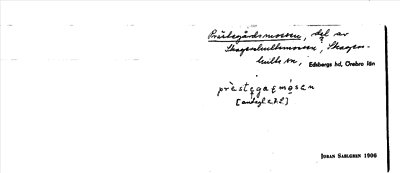 Prästegårdsmossen, del av
Skagershultsmossen, Skagers-
hults sn, Edsbergs hd, Örebro län
præ̀stęgaęmósęn
JOHAN SAHLGREN 1906